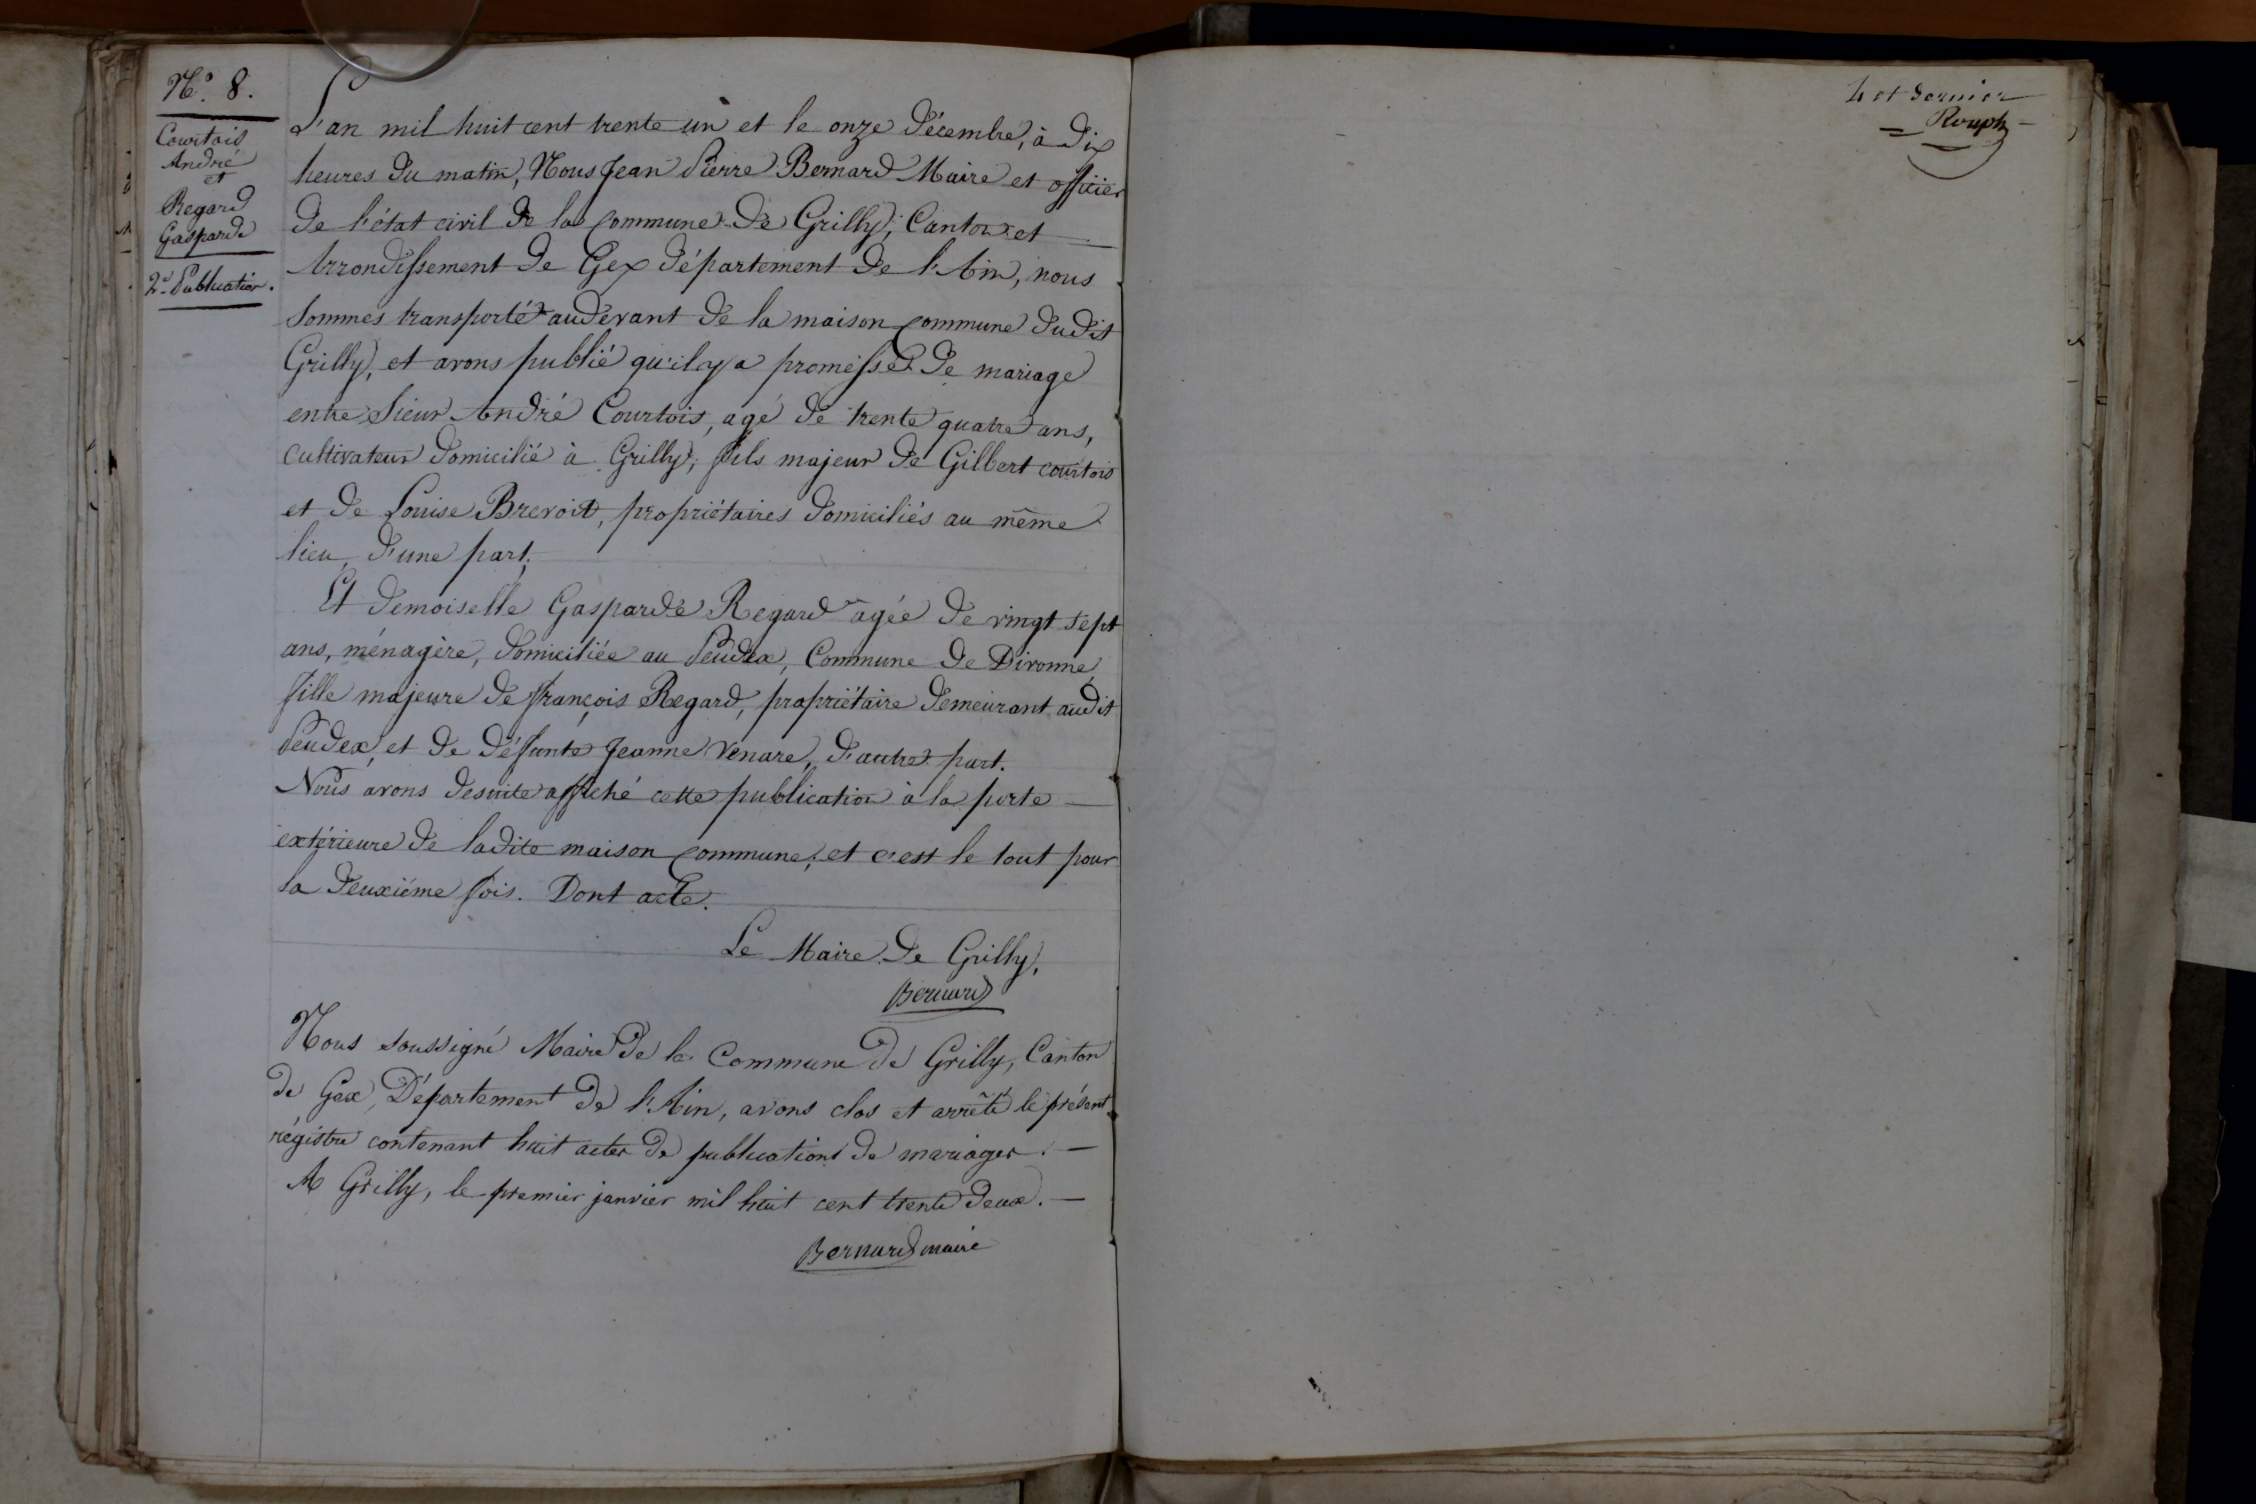 N.º 8.
Courtois
André
et
Regard
Gasparde
2.e Publication.
L'an mil huit cent trente un et le onze Décembre, à dix
heures du matin, Nous Jean Pierre Bernard Maire et officier
de l'état civil de la Commune de Grilly, Canton et
Arrondissement de Gex département de l'Ain, nous
sommes transporté audevant de la maison commune dudit
Grilly, et avons publié qu'il y a promesse de mariage
entre Sieur André Courtois, agé de trente quatre ans,
cultivateur domicilié à Grilly, fils majeur de Gilbert courtois
et de Louise Brevoit, propriétaires domiciliés au même
lieu, d'une part;
Et demoiselle Gasparde Regard agée de vingt sept
ans, ménagère, domiciliée au Peudex, Commune de Divonne,
fille majeure de françois Regard, propriétaire demeurant audit
Peudex, et de défunte Jeanne Venare, d'autre part.
Nous avons desuite affiché cette publication à la porte
extérieure de ladite maison commune, et c'est le tout pour
la deuxiéme fois. Dont acte.
Le Maire de Grilly,
Bernard
Nous soussigné Maire de la Commune de Grilly, Canton
de Gex, Département de l'Ain, avons clos et arrêté le présent
régistre contenant huit actes de publications de mariages.
A Grilly, le premier janvier mil huit cent trente deux.
Bernard maire
4 et dernier
Rouph